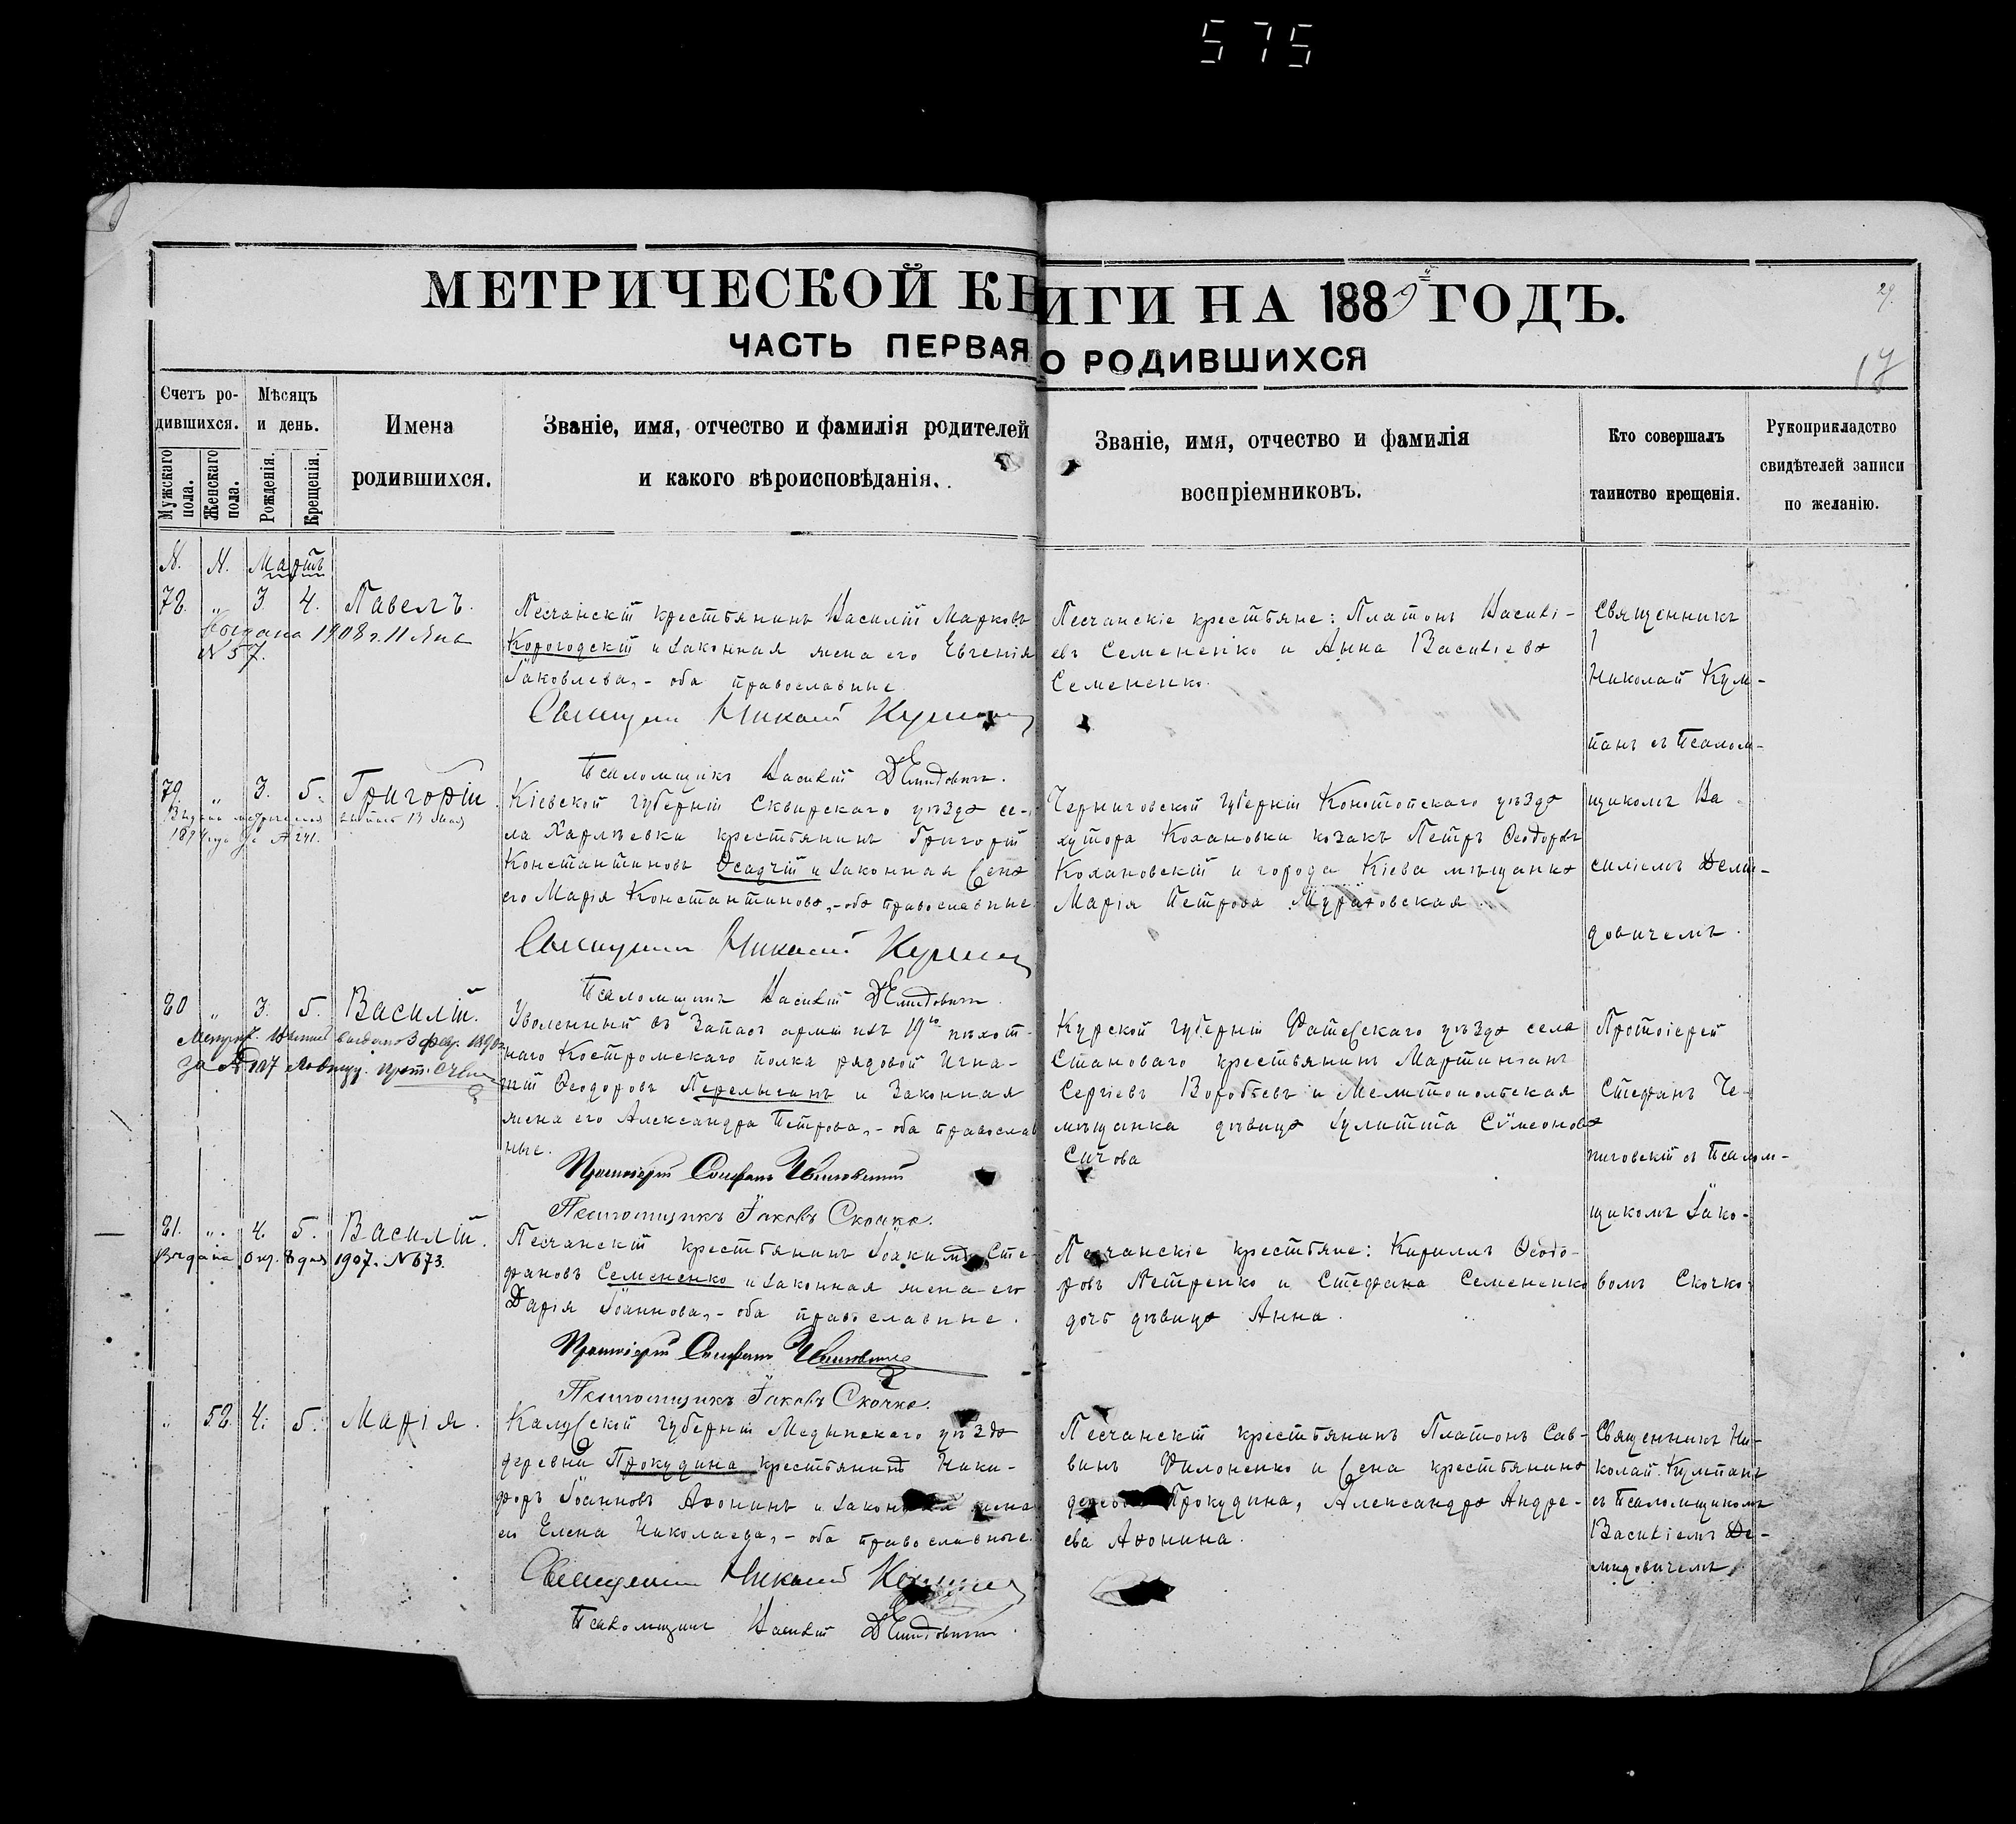 575
МЕТРИЧЕСКОЙ КНИГИ НА 1889й ГОДЪ.
29.
ЧАСТЬ ПЕРВАЯ О РОДИВШИХСЯ
17
Счетъ ро-
дившихся.
Мужскаго пола.
Женскаго пола.
Мѣсяцъ
и день.
Рожденія.
Крещенія.
Имена
родившихся.
Званіе, имя, отчество и фамилія родителей
и какого вѣроисповѣданія.
Званіе, имя, отчество и фамилія
воспріемниковъ.
Кто совершалъ
таинство крещенія.
Рукоприкладство
свидѣтелей записи
по желанію.
N. N. Мартъ
78. " 3. 4. Павелъ.
Выдана 1908 г. 11 Янв
N 57.
Песчанскій крестьянинъ Василій Марковъ
Корогодскій и законная жена его Евгенія
Іаковлева, - оба православные.
Священник Николай
Псаломщикъ Василій Демидовичъ.
Песчанскіе крестьяне: Платонъ Василі-
евъ Семененко и Анна Василіева
Семененко.
Священникъ
Николай Кум-
панъ съ Псалом-
79. " 3. 5. Григорій.
1894 года за N 241.
Кіевской губерніи Сквирскаго уѣзда се-
ла Харлѣевки крестьянинъ Григорій
Константиновъ Осадчій и законная жена
его Марія Константинова, - оба православные.
Священник Николай
Псаломщикъ Василій Демидовичъ.
Черниговской губерніи Конотопскаго уѣзда
хутора Кохановки козакъ Петръ Ѳеодоровъ
Кохановскій и города Кіева мѣщанка
Марія Петрова
щикомъ Ва-
силіемъ Деми-
довичемъ.
80 " 3. 5. Василій.
выдано 3 фев. 1890
за N 127
Уволенный въ запасъ арміи изъ 19го пѣхот-
наго Костромскаго полка рядовой Игна-
тій Ѳеодоровъ Перелыгинъ и законная
жена его Александра Петрова, - оба православ
ные.
Протоіерей Стефанъ
Псаломщикъ Іаковъ Скочко.
Курской губерніи Фатежскаго уѣзда села
Становаго крестьянинъ Мартиніанъ
Сергіевъ Воробьевъ и Мелитопольская
мѣщанка дѣвица Іулитта Сѵмеонова
Сычова
Протоіерей
Стефанъ Че-
пиговскій съ Псалом-
щикомъ Іако-
вомъ Скочко.
81. " 4. 5. Василій.
Выдана Окт. 8 дня 1907. N 673.
Песчанскій крестьянинъ Іоакимъ Сте-
фановъ Семененко и законная жена его
Дарія Іоаннова, - оба православные.
Протоіерей Стефанъ
Псаломщикъ Іаковъ Скочко.
Песчанскіе крестьяне: Кириллъ Ѳеодо-
ровъ Петренко и Стефана Семененко
дочь дѣвица Анна.
" 52 4. 5. Марія.
Калужской губерніи Медынскаго уѣзда
деревни Прокудина крестьянинъ Ники-
форъ Іоанновъ Аѳонинъ и законная жена
его Елена Николаева, - оба православные.
Священник Николай
Псаломщикъ Василій Демидовичъ.
Песчанскій крестьянинъ Платонъ Сав-
винъ Филоненко и жена крестьянина
деревни Прокудина, Александра Андре-
ева Аѳонина.
Священникъ Ни-
колай Кумпанъ
съ Псаломщикомъ
Василіемъ Де-
мидовичемъ.